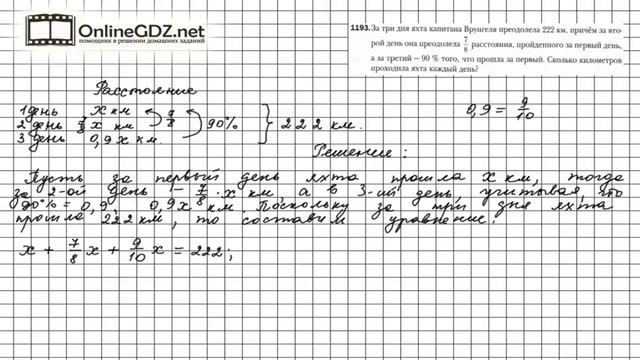 OnlineGDZ.net
помощник в решении домашних заданий
1193. За три дня яхта капитана Врунгеля преодолела 222 км, причём за вто-
рой день она преодолела 7/8 расстояния, пройденного за первый день,
а за третий – 90 % того, что прошла за первый. Сколько километров
проходила яхта каждый день?
Расстояние
1 день x км 7/8
2 день 7/8 x км 90% } 222 км.
3 день 0,9 x км.
0,9 = 9/10
Решение:
Пусть за первый день яхта прошла x км, тогда
за 2-ой день – 7/8 · x км а в 3-ий день, учитывая, что
90% = 0,9, 0,9x км. Поскольку за три дня яхта
прошла 222 км, то составим уравнение:
x + 7/8 x + 9/10 x = 222;